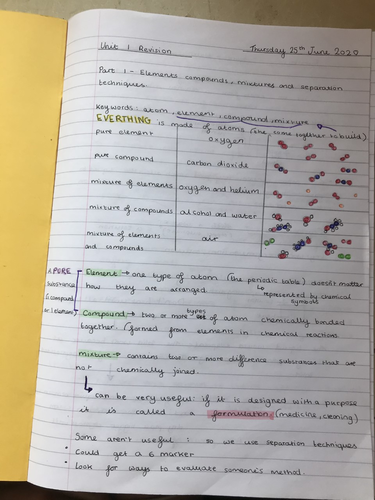 Unit 1 Revision Thursday 25th June 2020
Part 1 - Elements, compounds, mixtures and separation
techniques
Key words: atom, element, compound, mixture
EVERTHING is made of atoms (the come together to build)
pure element oxygen
pure compound carbon dioxide
mixture of elements oxygen and helium
mixture of compounds alcohol and water
mixture of elements air
and compounds
A PURE
substance
is compound
or 1 element
Element → one type of atom (the periodic table) doesn't matter
how they are arranged. ↳ represented by chemical
symbols
Compound → two or more types of atom chemically bonded
together (formed from elements in chemical reactions
mixture → contains two or more difference substances that are
not chemically joined.
↳ can be very useful: if it is designed with a purpose
it is called a formulation. (medicine, cleaning)
Some aren't useful : so we use separation techniques
• Could get a 6 marker
• Look for ways to evaluate someone's method.